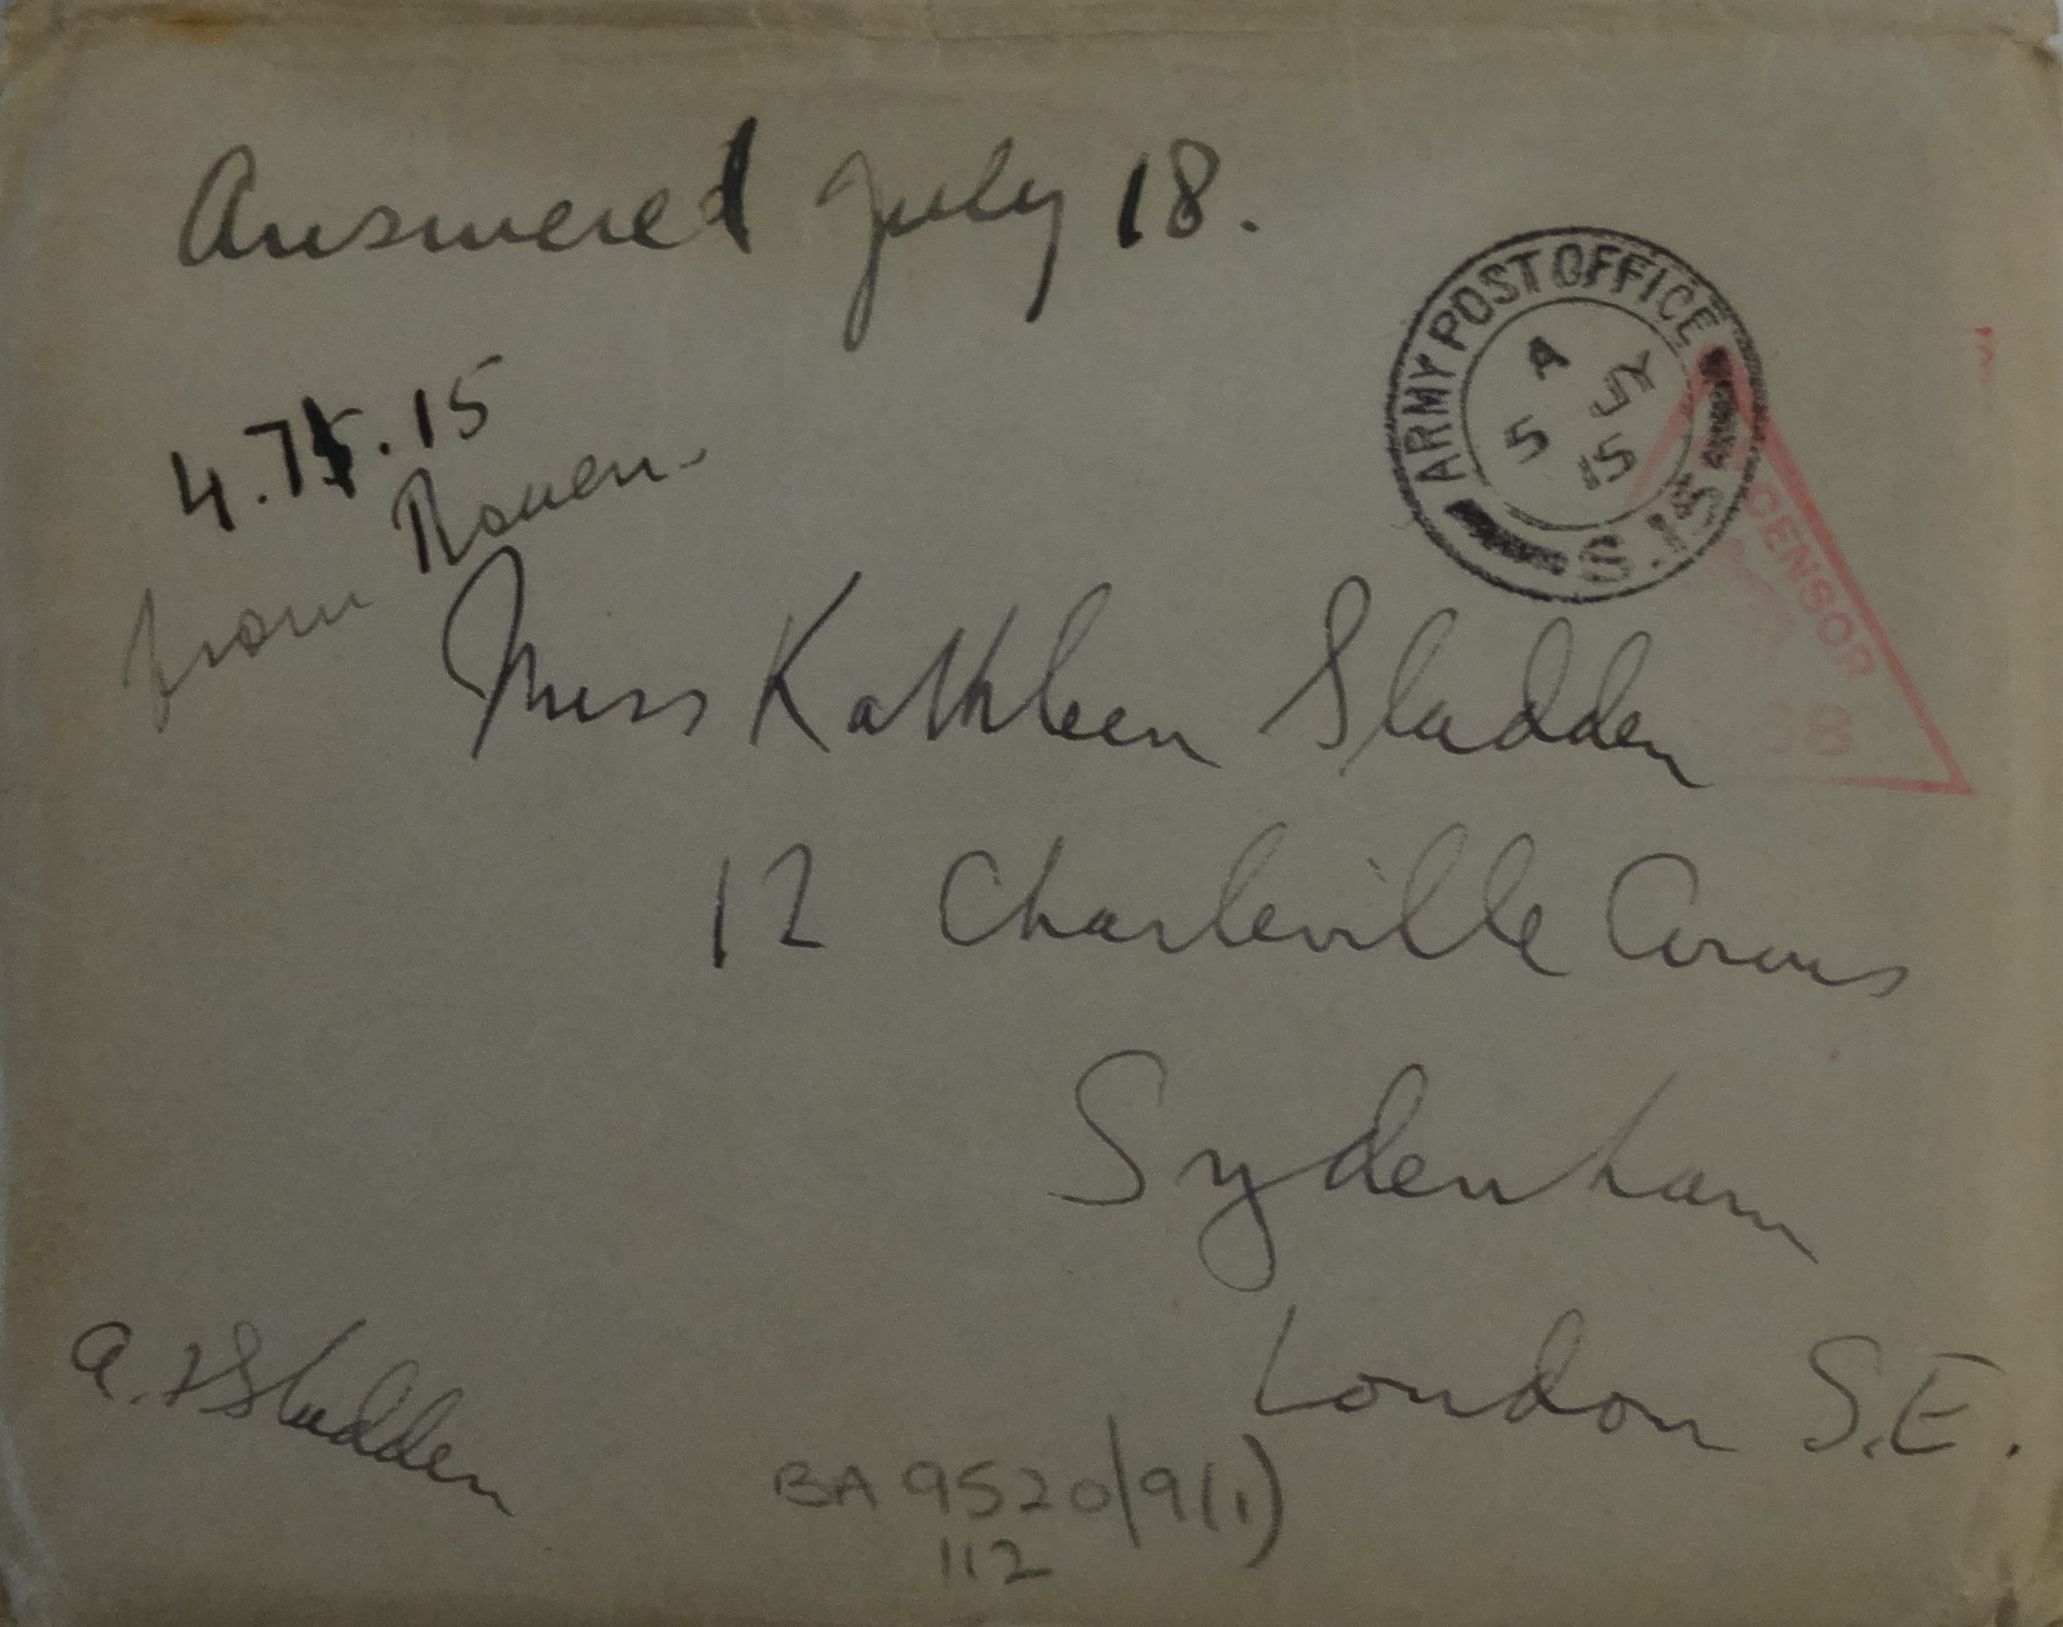 Answered July 18.
4.7.15
from Rouen.
ARMY POST OFFICE
A
5 JY
15
S.15
CENSOR
Miss Kathleen Sladden
12 Charleville Circus
Sydenham
London S.E.
A. F Sladden
BA 9520/9(1)
112